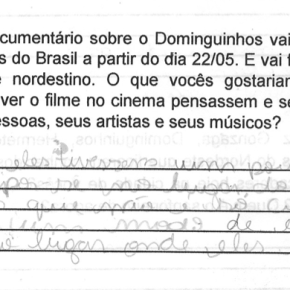 cumentário sobre o Dominguinhos vai
s do Brasil a partir do dia 22/05. E vai f
e nordestino. O que vocês gostariam
ver o filme no cinema pensassem e se
essoas, seus artistas e seus músicos?
eles tivessem um po
no lugar do
que não é só
uma moda de
lugar onde eles